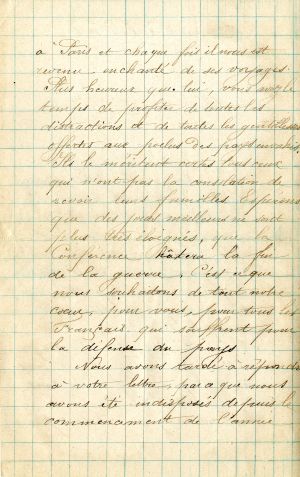 à Paris et chaque fois il nous est
revenu enchanté de ses voyages.
Plus heureux que lui, vous avez le
temps de profiter de toutes les
distractions et de toutes les gentillesses
offertes aux poilus des pays envahis.
Ils le méritent certes tous ceux
qui n'ont pas la consolation de
revoir leurs familles. Espérons
que des jours meilleurs ne sont
plus très éloignés, que la
Conférence hâtera la fin
de la guerre. C'est ce que
nous souhaitons de tout notre
coeur, pour vous, pour tous les
Français qui souffrent pour
la défense du pays.
Nous avons tardé à répondre
à votre lettre, parce que nous
avons été indisposés depuis le
commencement de l'année